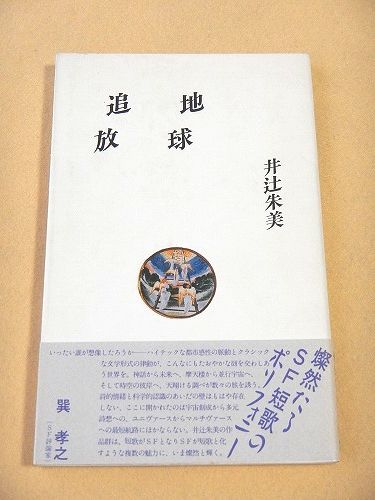 地球
追放
井辻朱美
燦然たる
SF短歌の
ポリフォニー
いったい誰が想像したろうか――ハイテックな都市感性の脈動とクラシック
な文学形式の律動が、こんなにもたおやかな刻を交わしあ
う世界を。神話から未来へ、摩天楼から並行宇宙へ、
そして時空の彼岸へ、天翔ける調べが数々の旅を誘う。
詩的情緒と科学的認識のあいだの壁はもはや存在
しない。ここに開かれたのは宇宙創成から多元
詩想への、ユニヴァースからマルチヴァース
への最短航路にほかならない。井辻朱美の作
品群は、短歌がSFとなりSFが短歌と化
すような複数の魅力に、いま燦然と輝く。
巽 孝之
(SF評論家)